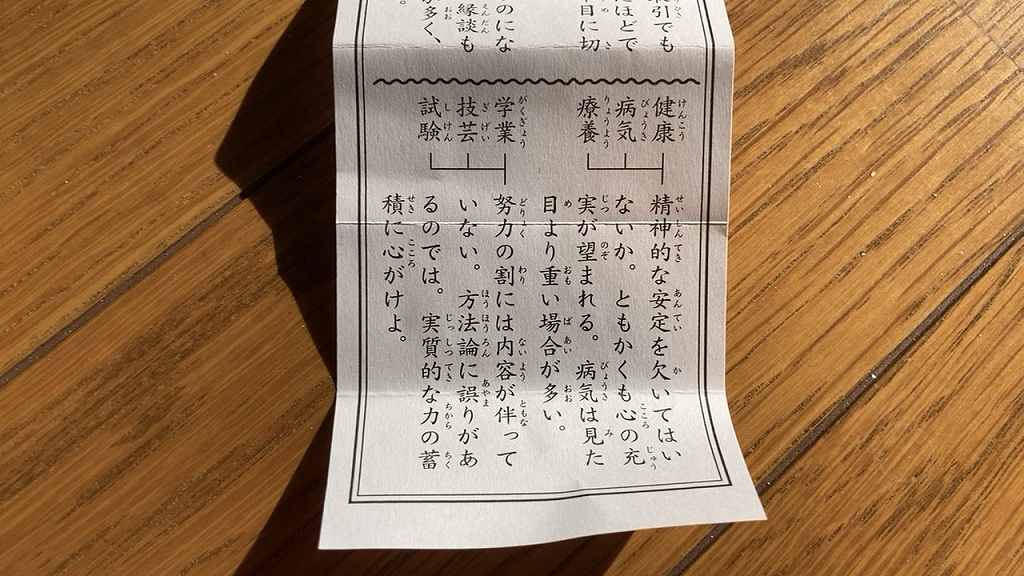 引でも
ほどで
目に切
のにな
縁談も
多く、
。
健康
病気
療養
精神的な安定を欠いてはい
ないか。ともかくも心の充
実が望まれる。病気は見た
目より重い場合が多い。
学業
技芸
試験
努力の割には内容が伴って
いない。方法論に誤りがあ
るのでは。実質的な力の蓄
積に心がけよ。